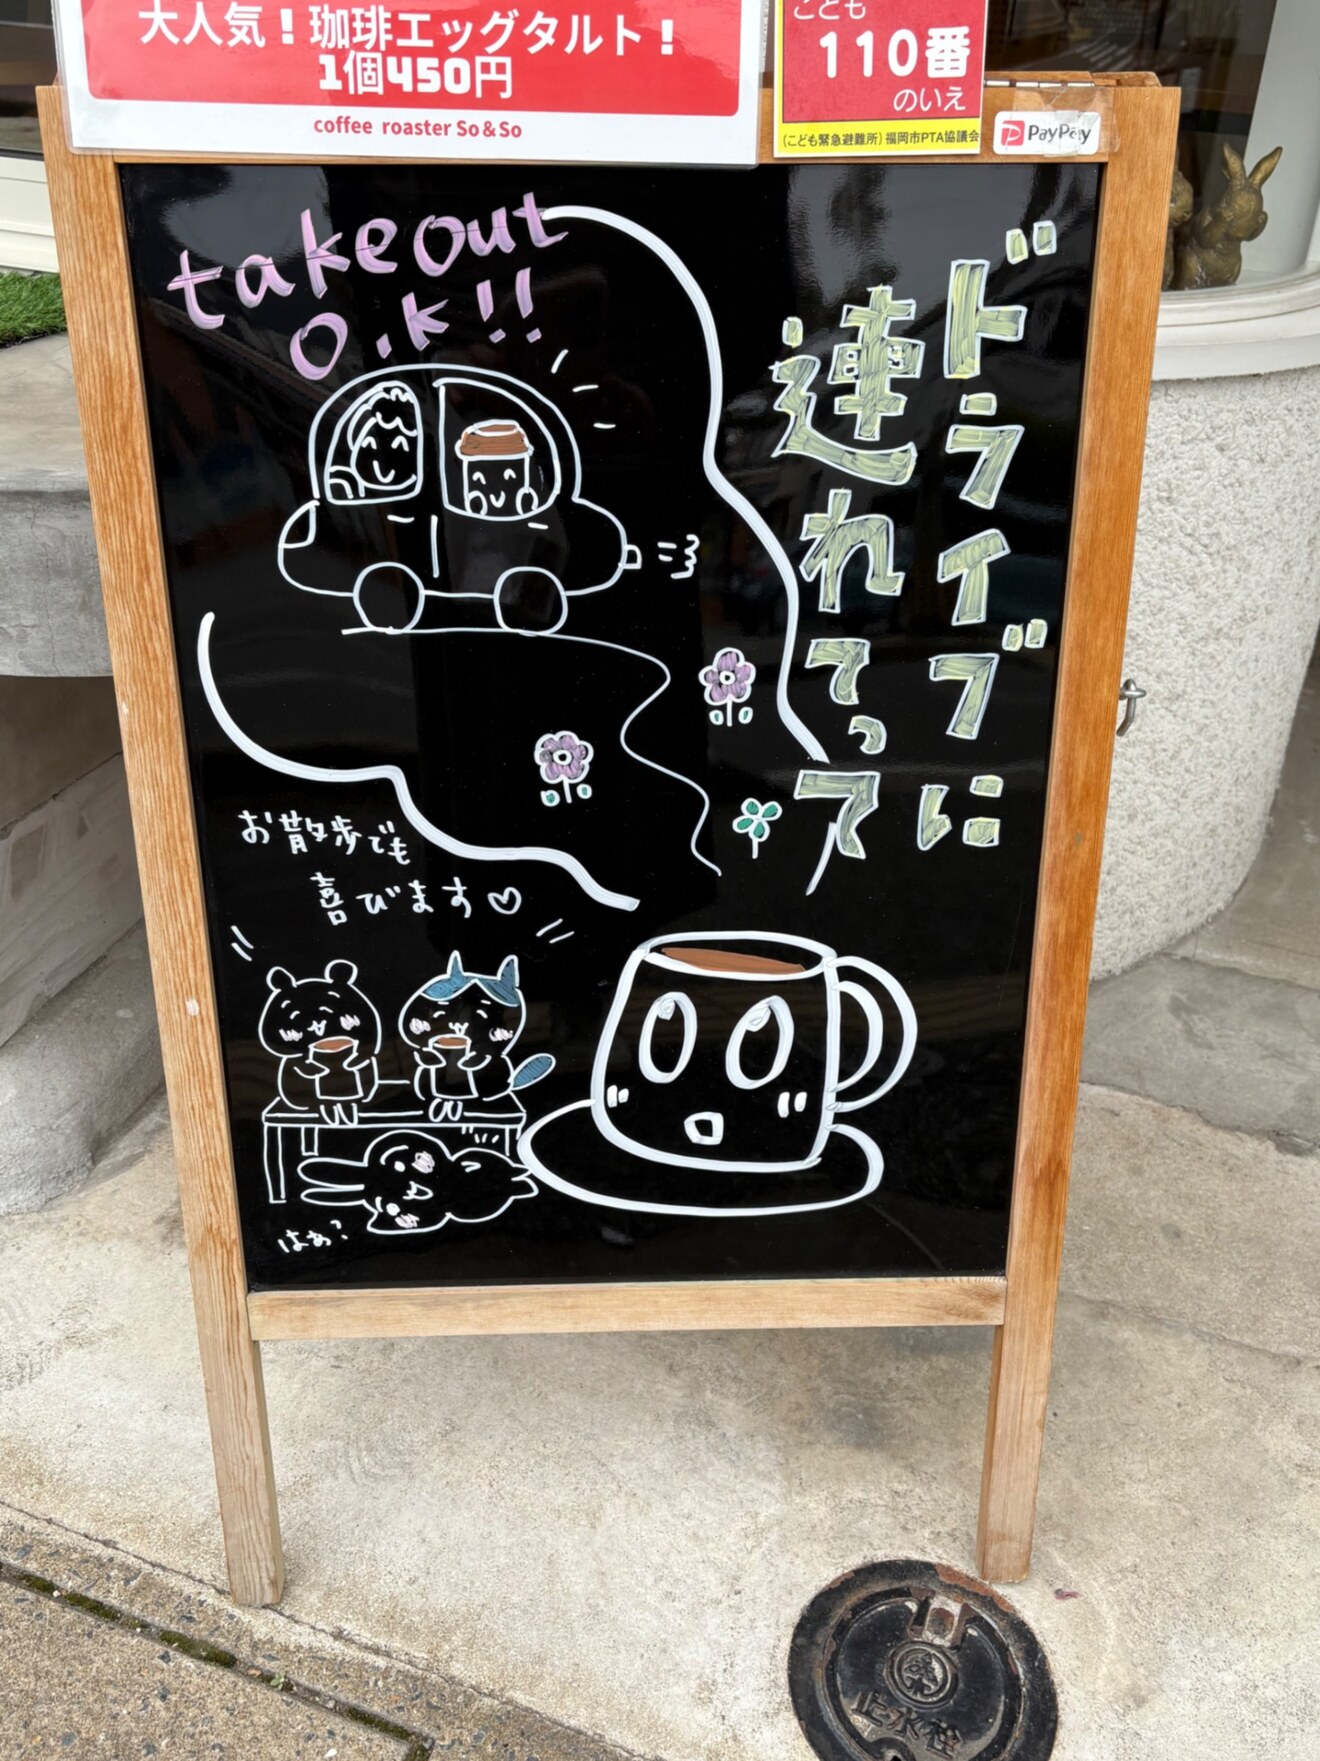 大人気！珈琲エッグタルト！
1個450円
coffee roaster So＆So
こども
110番
のいえ
(こども緊急避難所) 福岡市PTA協議会
PayPay
takeout
O.K!!
ドライブに
連れてって
お散歩でも
喜びます♡
はぁ?
止水栓